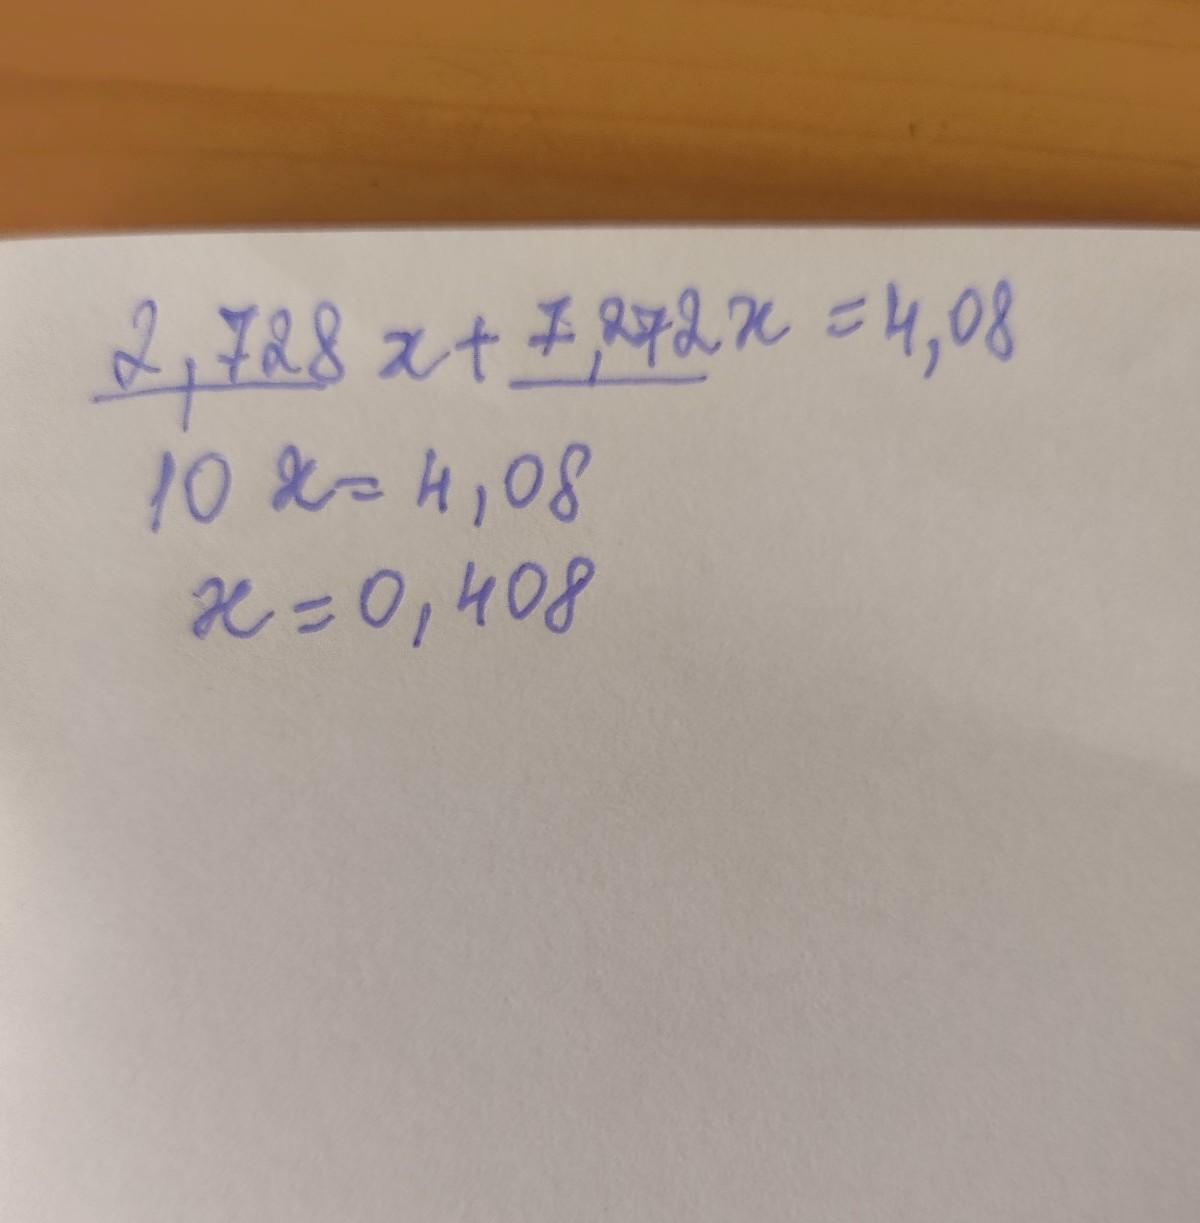 2,728 x + 7,272 x = 4,08
10 x = 4,08
x = 0,408